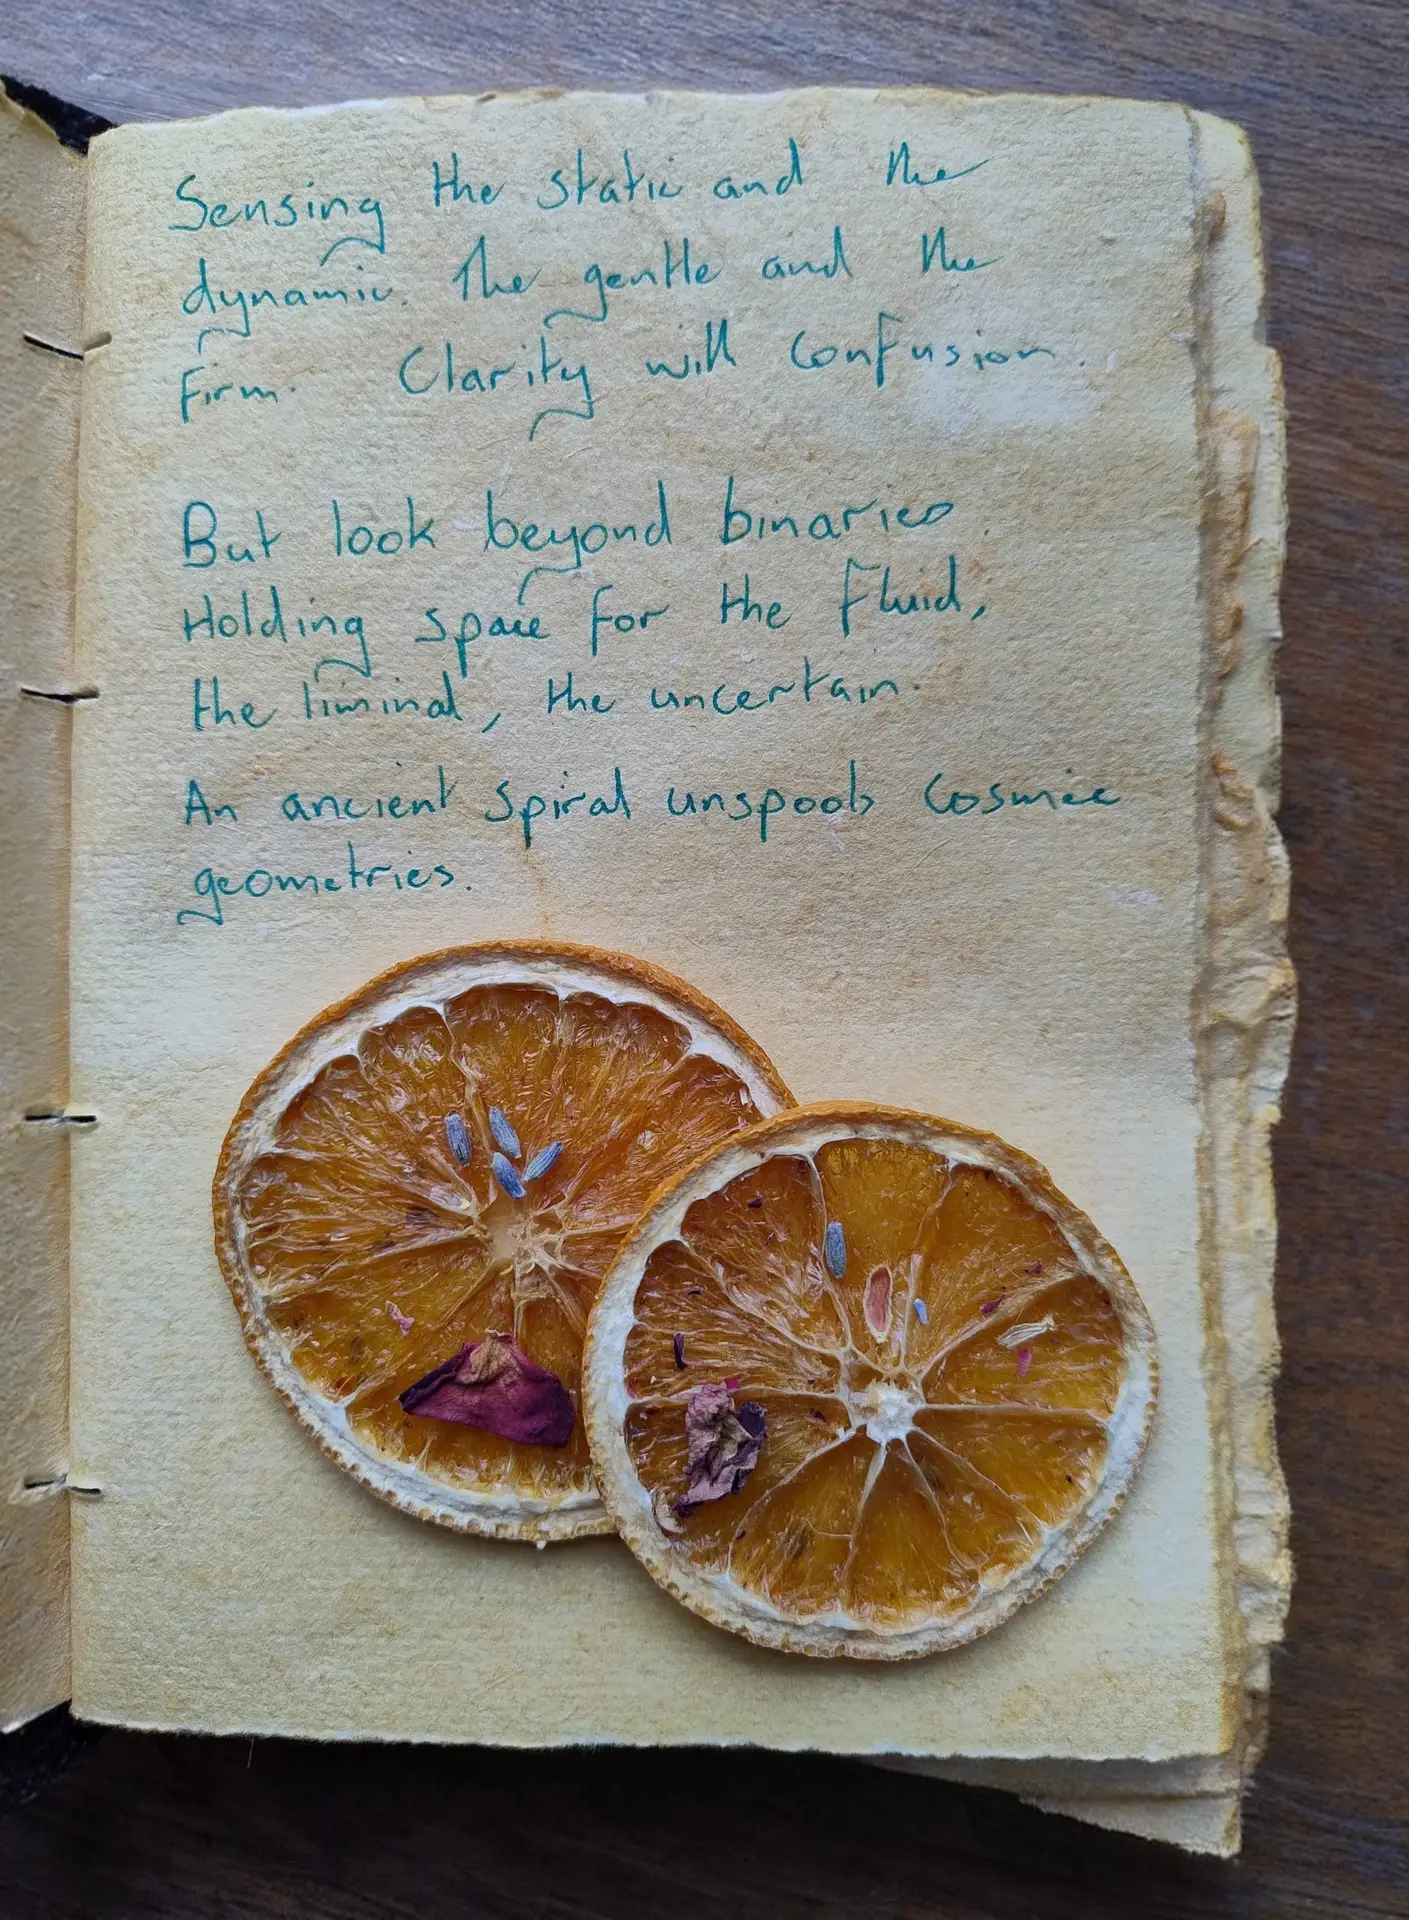 Sensing the static and the
dynamic. The gentle and the
firm. Clarity with confusion.
But look beyond binaries.
Holding space for the fluid,
the liminal, the uncertain.
An ancient spiral unspools cosmic
geometries.